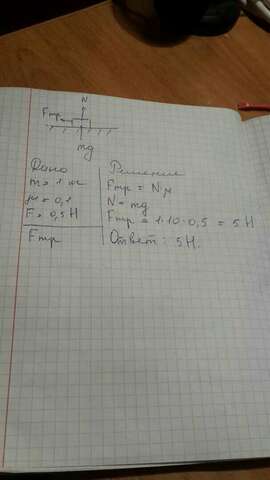 N
Fтр
mg
Дано
Решение
m = 1 кг
Fтр = N·μ
μ = 0,1
N = mg
F = 0,5 Н
Fтр = 1·10·0,5 = 5 Н
Fтр
Ответ: 5 Н.